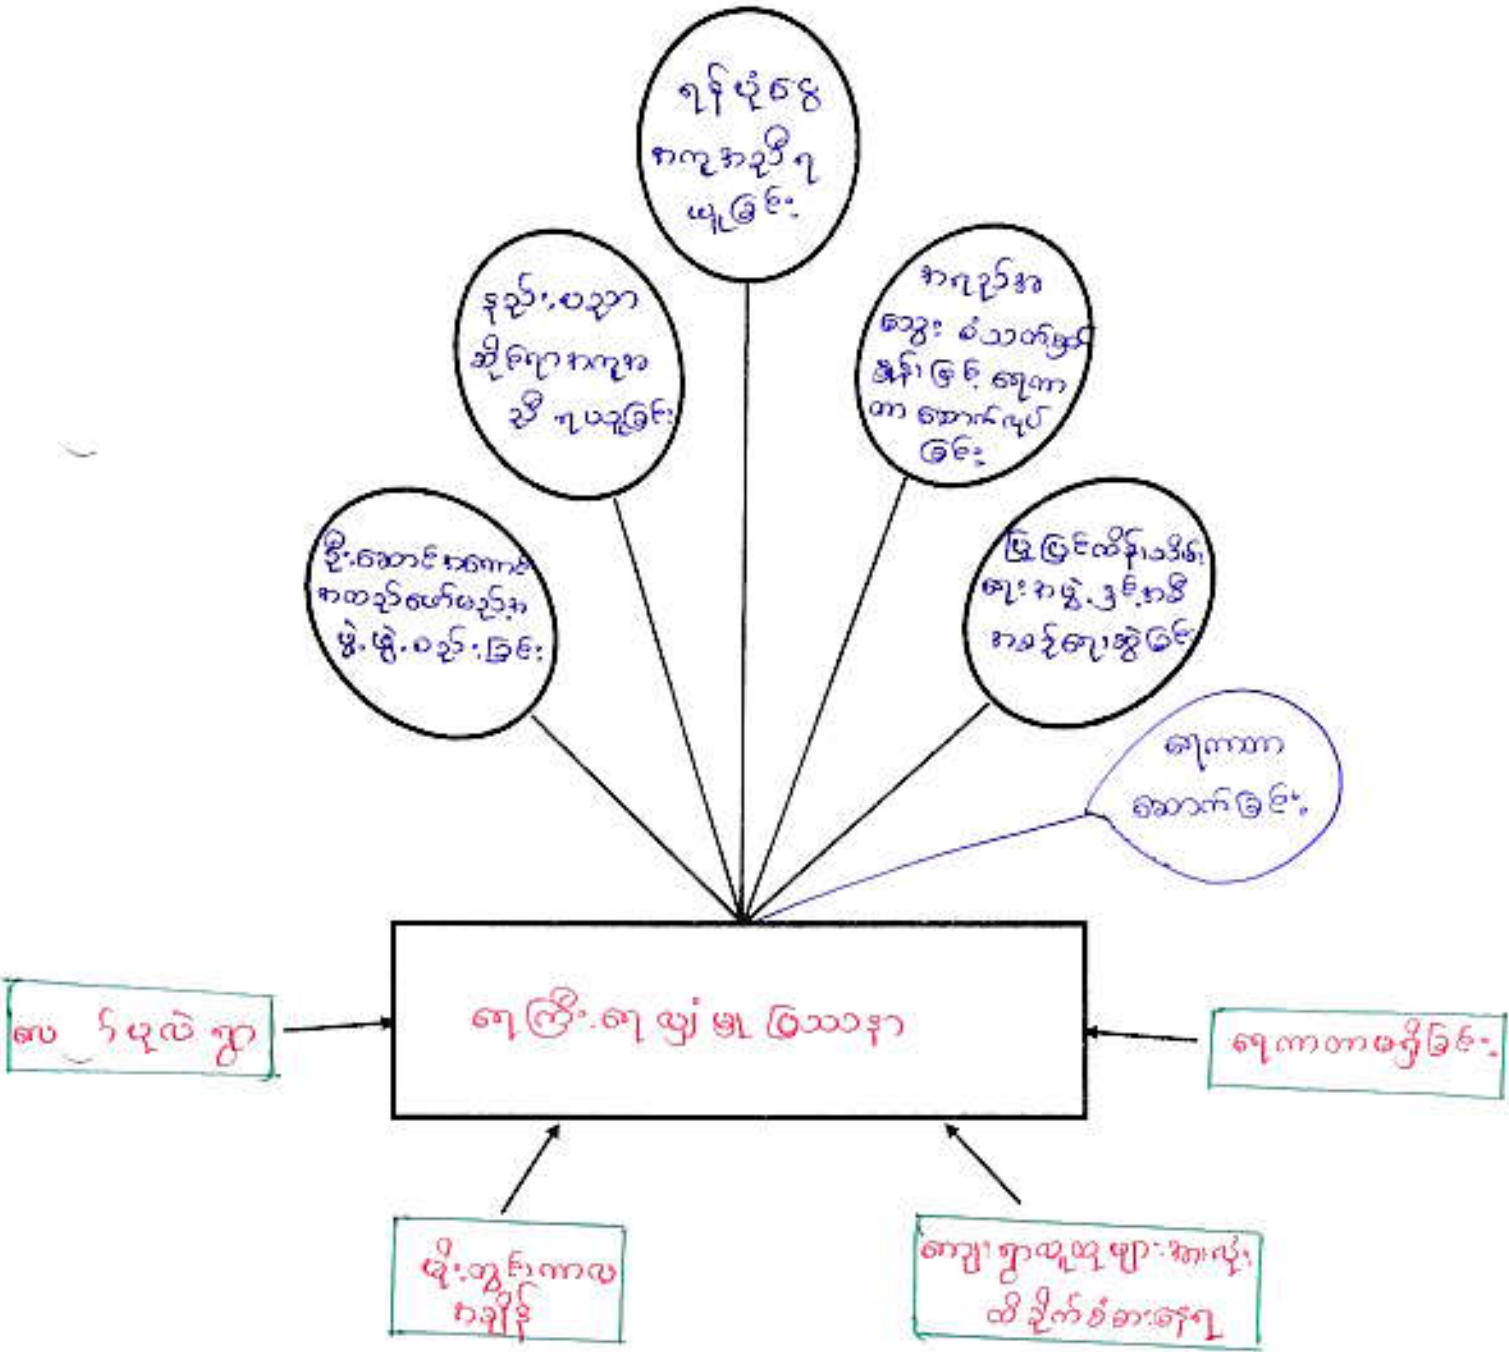 ရန်ပုံငွေ
အကူအညီရ
ယူခြင်း
နည်းပညာ
ဆိုင်ရာအကူအ
ညီ ရယူခြင်း
အရည်အ
သွေး စံသတ်မှတ်
နှုန်းဖြင့် ရေကာ
တာ ဆောက်လုပ်
ခြင်း
ဦးဆောင်အကောင်
အထည်ဖော်မည့်အ
ဖွဲ့ဖွဲ့စည်းခြင်း
ပြုပြင်ထိန်းသိမ်း
ရေးအဖွဲ့နှင့်အစီ
အစဉ်ရေးဆွဲခြင်း
ရေကာတာ
ဆောက်ခြင်း
ရေကြီးရေလျှံမှု ပြဿနာ
ပုလဲ ရွာ
ရေကာတာမရှိခြင်း
မိုးတွင်းကာလ
အချိန်
ကျေးရွာလူထုများအားလုံး
ထိခိုက်ခံစားနေရ